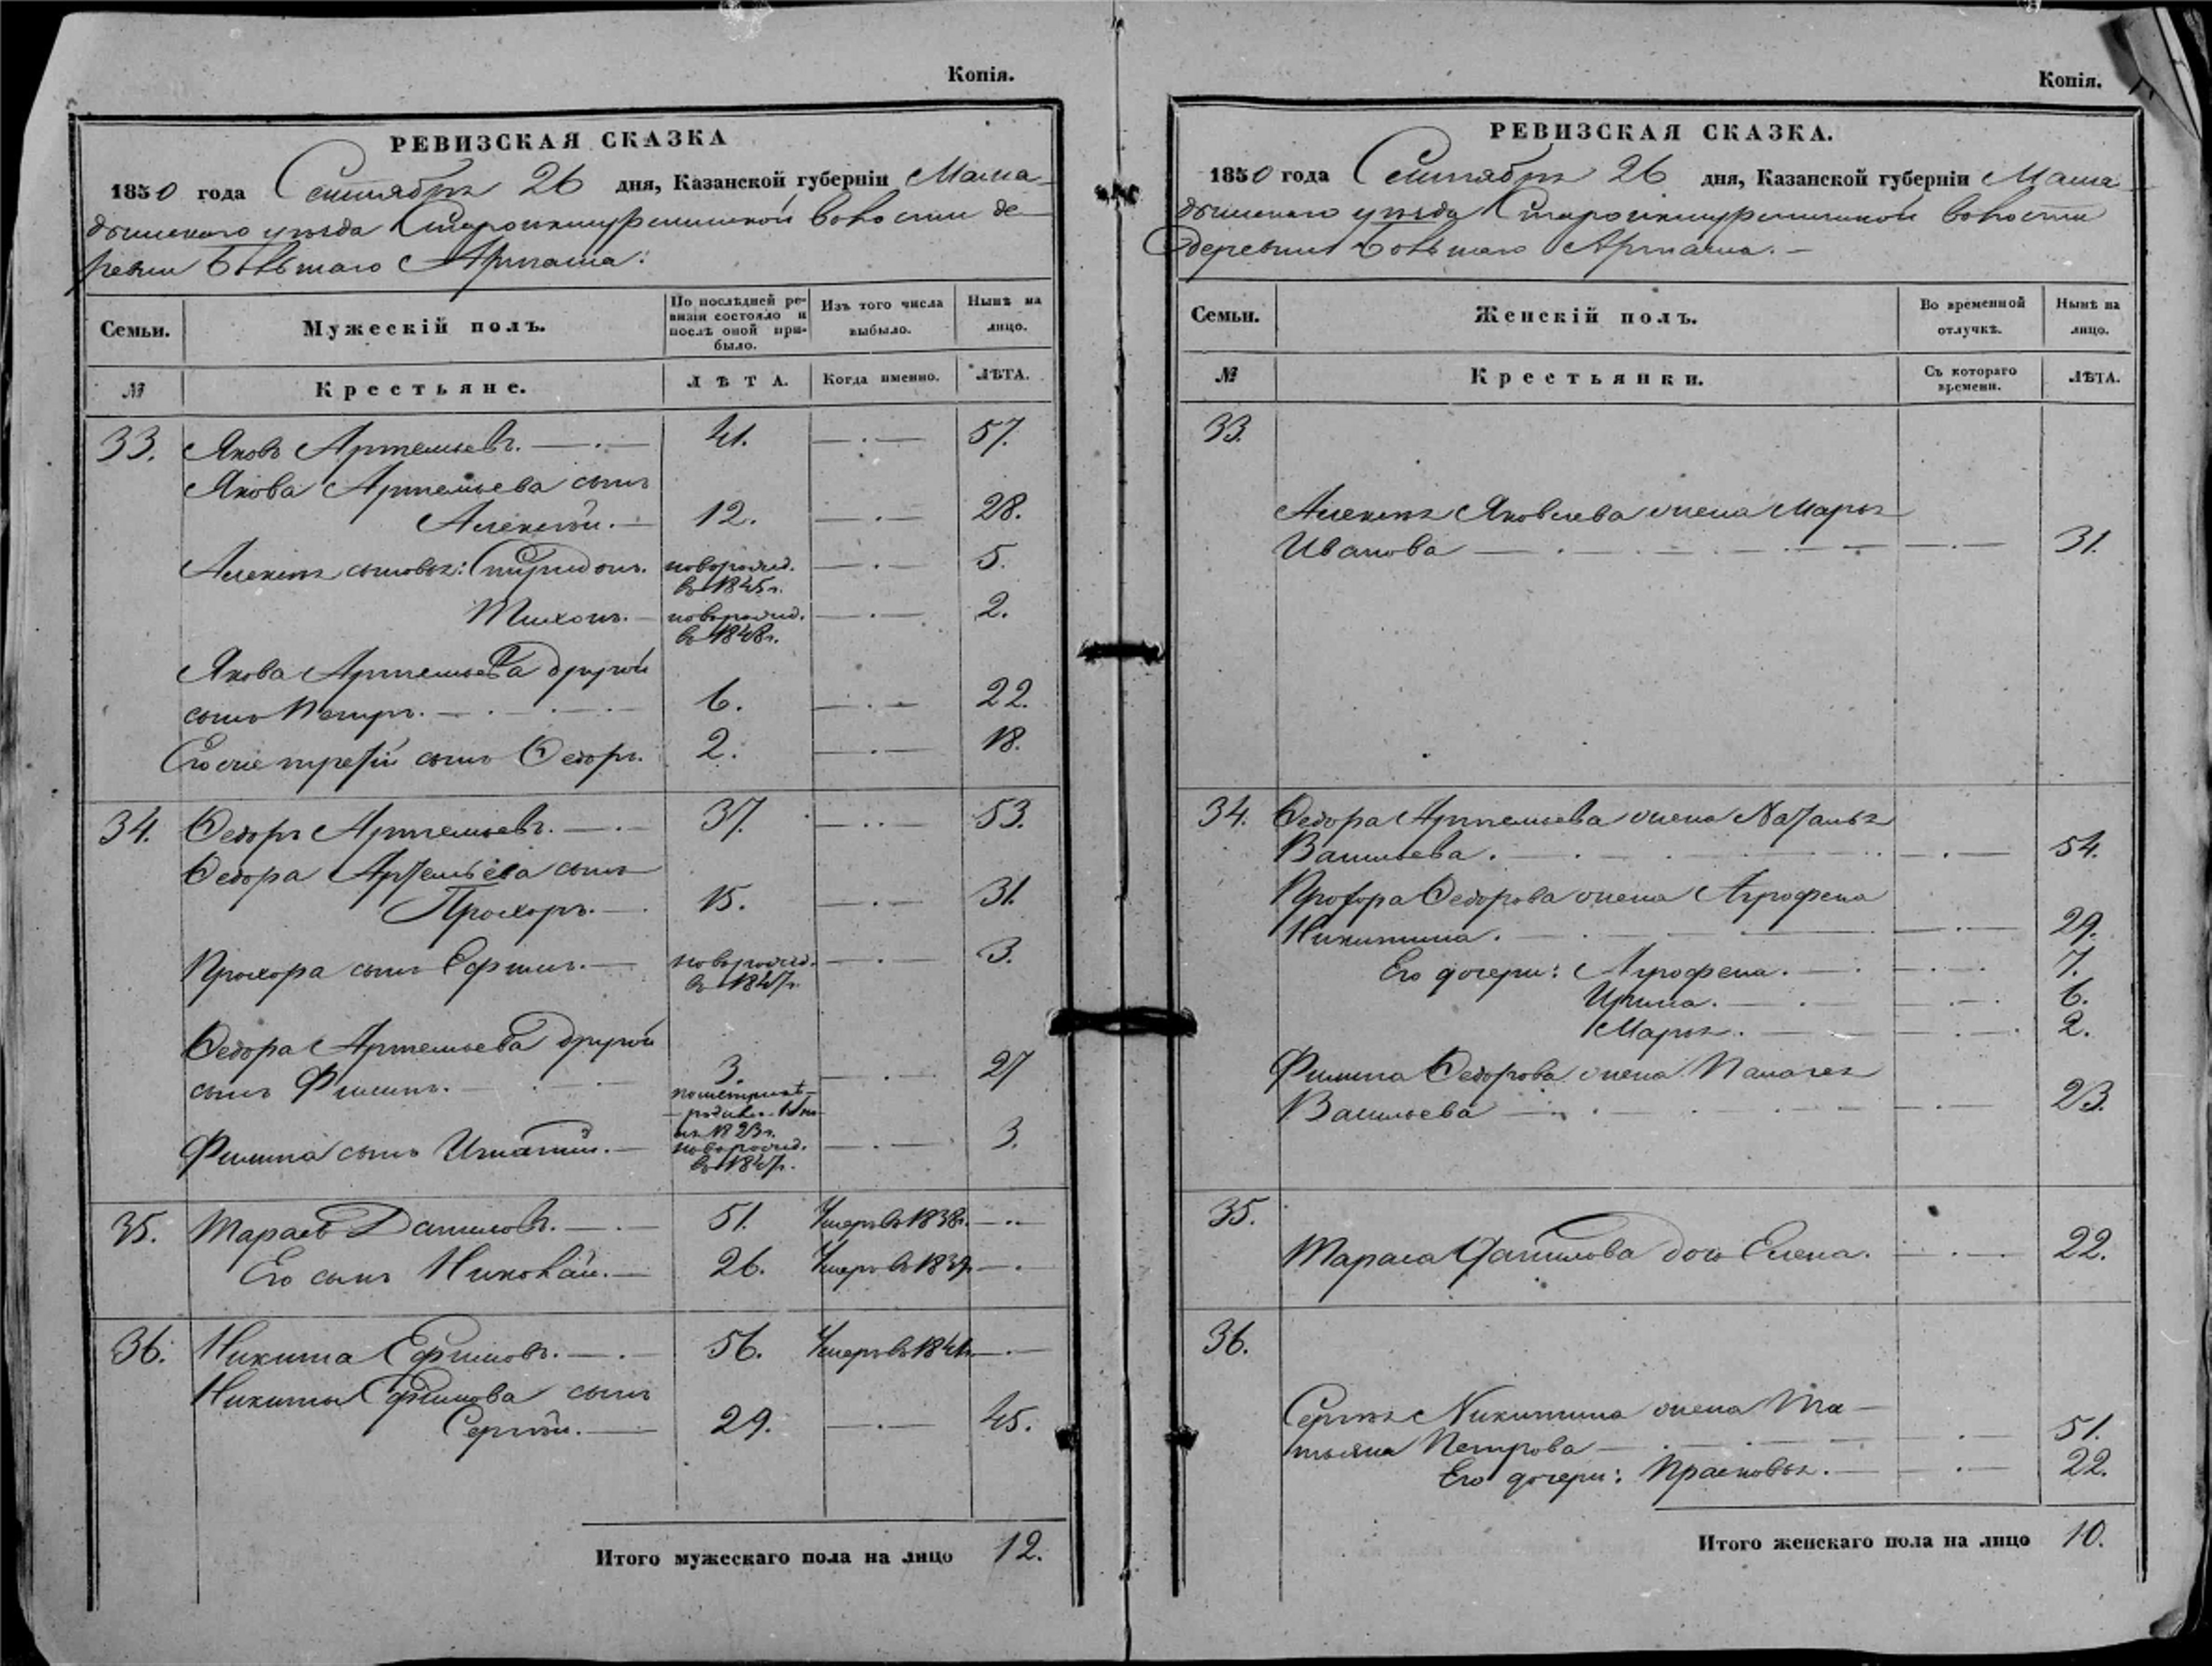 Копія.
РЕВИЗСКАЯ СКАЗКА
1850 года Сентября 26 дня, Казанской губерніи Мама-
дышскаго уѣзда Старо волости де-
ревни Большаго Арташа.
Семьи.
Мужескій полъ.
По послѣдней ре-
визіи состояло и
послѣ оной при-
было.
Изъ того числа
выбыло.
Нынѣ на
лицо.
№
Крестьяне.
ЛѢТА.
Когда именно.
ЛѢТА.
33. Яковъ Артемьевъ. 41. 57.
Якова Артемьева сынъ
Алексѣй. 12. 28.
Алексѣя сыновья: Спиридонъ. новорожд. 5.
въ 1845 г.
Тихонъ. новорожд. 2.
въ 1848 г.
Якова Артемьева другой
сынъ Петръ. 6. 22.
Его же третій сынъ Ѳедоръ. 2. 18.
34. Ѳедоръ Артемьевъ. 37. 53.
Ѳедора Артемьева сынъ
Прохоръ. 15. 31.
Прохора сынъ Ефимъ. новорожд. 3.
въ 1847 г.
Ѳедора Артемьева другой
сынъ Филипъ. 3. 27
по метрикѣ
родился
1823 г.
Филипа сынъ Игнатій. новорожд. 3.
въ 1847 г.
35. Тарасъ Даниловъ. 51. Умеръ въ 1838 г.
Его сынъ Николай. 26. Умеръ въ 1839
36. Никита Ефимовъ. 56. Умеръ въ 1841
Никиты Ефимова сынъ
Сергѣй. 29. 45.
Итого мужескаго пола на лицо 12.
Копія.
РЕВИЗСКАЯ СКАЗКА.
1850 года Сентября 26 дня, Казанской губерніи Мама-
дышскаго уѣзда Старо волости
деревни Большаго Арташа.
Семьи.
Женскій полъ.
Во временной
отлучкѣ.
Нынѣ на
лицо.
№
Крестьянки.
Съ котораго
времени.
ЛѢТА.
33.
Алексѣя Яковлева жена Марья
Иванова 31.
34. Ѳедора Артемьева жена Наталья
Васильева. 54.
Прохора Ѳедорова жена Агрофена
Никитина. 29.
Его дочери: Агрофена. 7.
Ирина. 6.
Марья. 2.
Филипа Ѳедорова жена Палагея
Васильева 23.
35.
Тараса Данилова дочь Елена. 22.
36.
Сергѣя Никитина жена Та-
тьяна Петрова 51.
Его дочери: Прасковья. 22.
Итого женскаго пола на лицо 10.